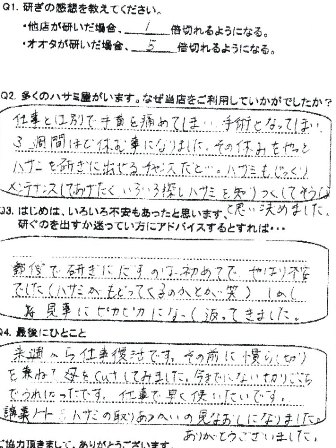 Q1. 研ぎの感想を教えてください。
・他店が研いだ場合、 1 倍切れるようになる。
・オオタが研いだ場合、 5 倍切れるようになる。
Q2. 多くのハサミ屋がいます。なぜ当店をご利用していかがでしたか？
仕事とは別で手首を痛めてしまい 手術となってしまい
3週間ほど休む事になりました。その休みをやっと
ハサミを研ぎに出せるチャンスだと…。ハサミもじっくり
メンテナンスしてあげたく いろいろ探しハサミを
と思い決めました。
Q3. はじめは、いろいろ不安もあったと思います。
研ぐのを出すか迷っている方にアドバイスするとすれば・・・
郵便で研ぎにだすのは初めてで やはり不安
でした(ハサミがもどってくるのかとか 笑) しかし
見事にピカピカになって返ってきました。
Q4. 最後にひとこと
来週から仕事復活です。その前に慣らし切り
を兼ね cutしてみました。今までにない切りごこち
でうれしかったです。仕事で早く使いたいです。
ハサミの取りあつかいの見なおしになりました
ありがとうございました
ご協力頂きまして、ありがとうございます。